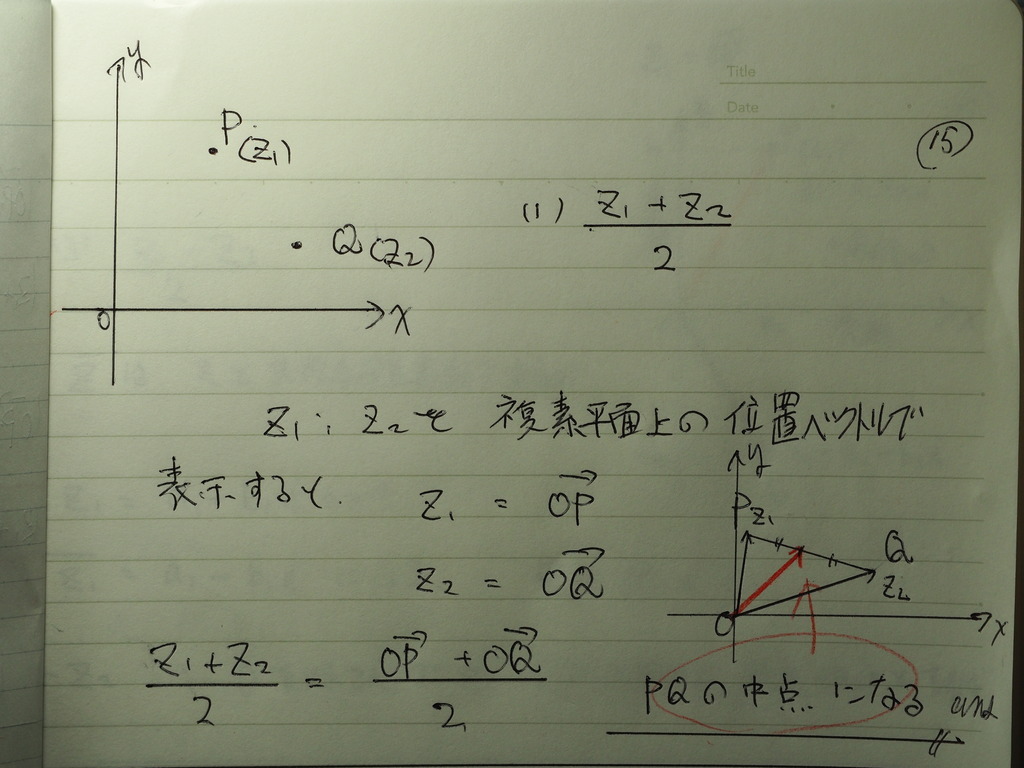 Title
Date
(15)
y
P(z₁)
Q(z₂)
O
x
(1) z₁ + z₂ / 2
z₁, z₂を 複素平面上の位置ベクトルで
表示すると.
z₁ = OP→
z₂ = OQ→
y
P z₁
Q
z₂
O
x
z₁+z₂ / 2 = OP→ + OQ→ / 2
PQの中点になる ans